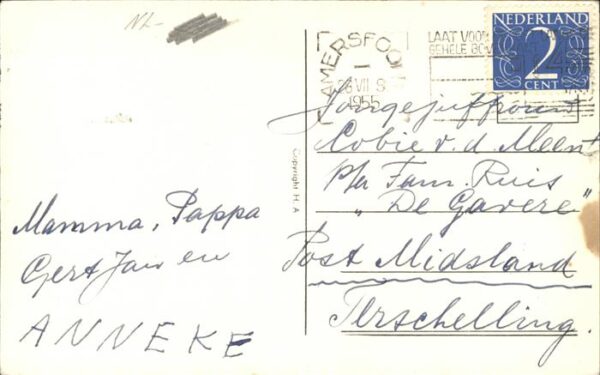 NL-
AMERSFOO
26 VII 9
1955
LAAT VOO
GEHELE BO
NEDERLAND
2
CENT
Jongejuffrouw
Cobie v.d. Meent
p/a Fam. Ruis
"De Gavere"
Post Midsland
Terschelling.
Copyright H. A
Mamma, Pappa
Gert Jan en
ANNEKE